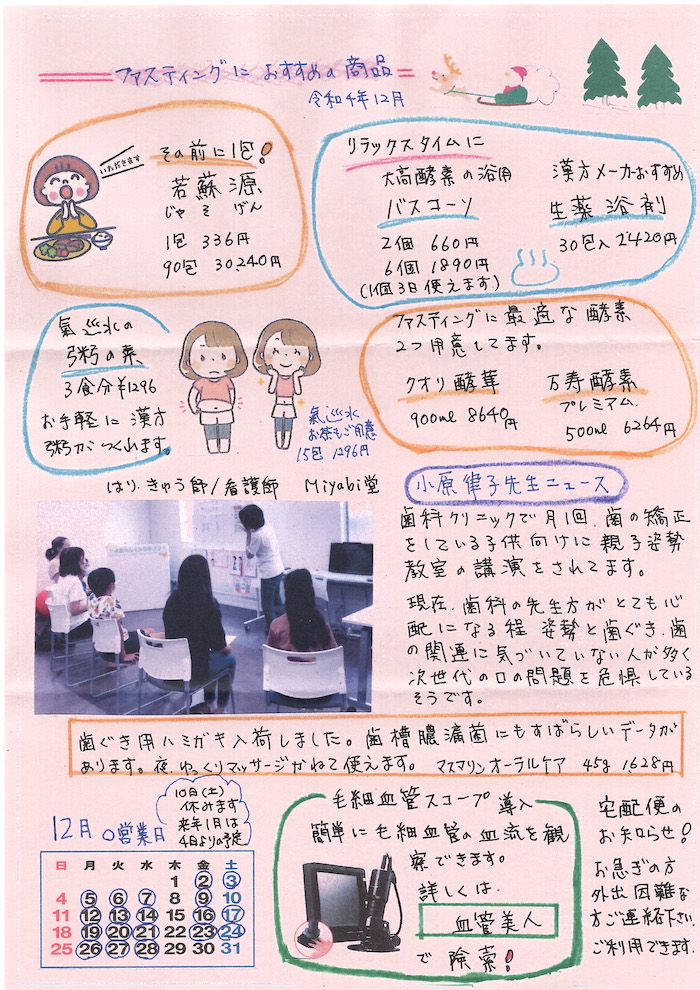 ファスティングに おすすめの商品
令和4年12月
いただきます
その前に1包!
若蘇源
じゃ そ げん
1包 336円
90包 30,240円
リラックスタイムに
大高酵素の浴用
バスコーソ
2個 660円
6個 1890円
(1個3日使えます)
漢方メーカーおすすめ
生薬浴剤
30包入 2420円
氣巡水の
粥の素
3食分¥1296
お手軽に漢方
粥がつくれます。
氣巡水
お茶もご用意
15包 1296円
ファスティングに最適な酵素
2つ用意してます。
クオリ酵華
900ml 8640円
万寿酵素
プレミアム
500ml 6264円
はり、きゅう師/看護師 Miyabi堂
小原律子先生ニュース
歯科クリニックで月1回、歯の矯正
をしている子供向けに親子姿勢
教室の講演をされてます。
現在、歯科の先生方がとても心
配になる程 姿勢と歯ぐき、歯
の関連に気づいていない人が多く
次世代の口の問題を危惧している
そうです。
歯ぐき用ハミガキ入荷しました。歯槽膿漏菌にもすばらしいデータが
あります。夜、ゆっくりマッサージかねて使えます。 マスマリンオーラルケア 45g 1,628円
10日(土)
休みます
来年1月は
4日よりの予定
12月 ○営業日
日 月 火 水 木 金 土
1 2 3
4 5 6 7 8 9 10
11 12 13 14 15 16 17
18 19 20 21 22 23 24
25 26 27 28 29 30 31
毛細血管スコープ 導入
簡単に毛細血管の血流を観
察できます。
詳しくは、
血管美人
で 険索!
宅配便の
お知らせ!
お急ぎの方
外出困難な
方ご連絡下さい。
ご利用できます。